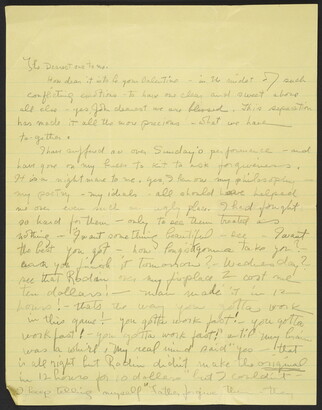 The Dearest one to me.
How dear it is to get your Valentine - in the midst of such
conflicting emotions - to have one clear and sweet above
all else - yes John dearest we are blessed. This separation
has made it all the more precious - what we have
together.
I have suffered so over Sunday's performance - and
have gone on my knees to ask forgiveness.
It is a nightmare to me. You know my philosophy
my poetry - my ideals - all should have helped
me over such an ugly place. I had fought
so hard for them - only to see them treated as
nothing - "I want something beautiful - see - I want
the best you got - how
you finish it tomorrow? Wednesday?
see that Rodin over my fireplace? cost me
ten dollars! - man made it in 12
hours! - that's the way you gotta work
in this game! you gotta work fast! you gotta
work fast! - you gotta work fast!" until my brain
was a whirl, my real mind said "yes - that
is all right but Rodin didn't make the original
in 12 hours for 10 dollars" but I couldn't
keep telling myself "Father forgive them they